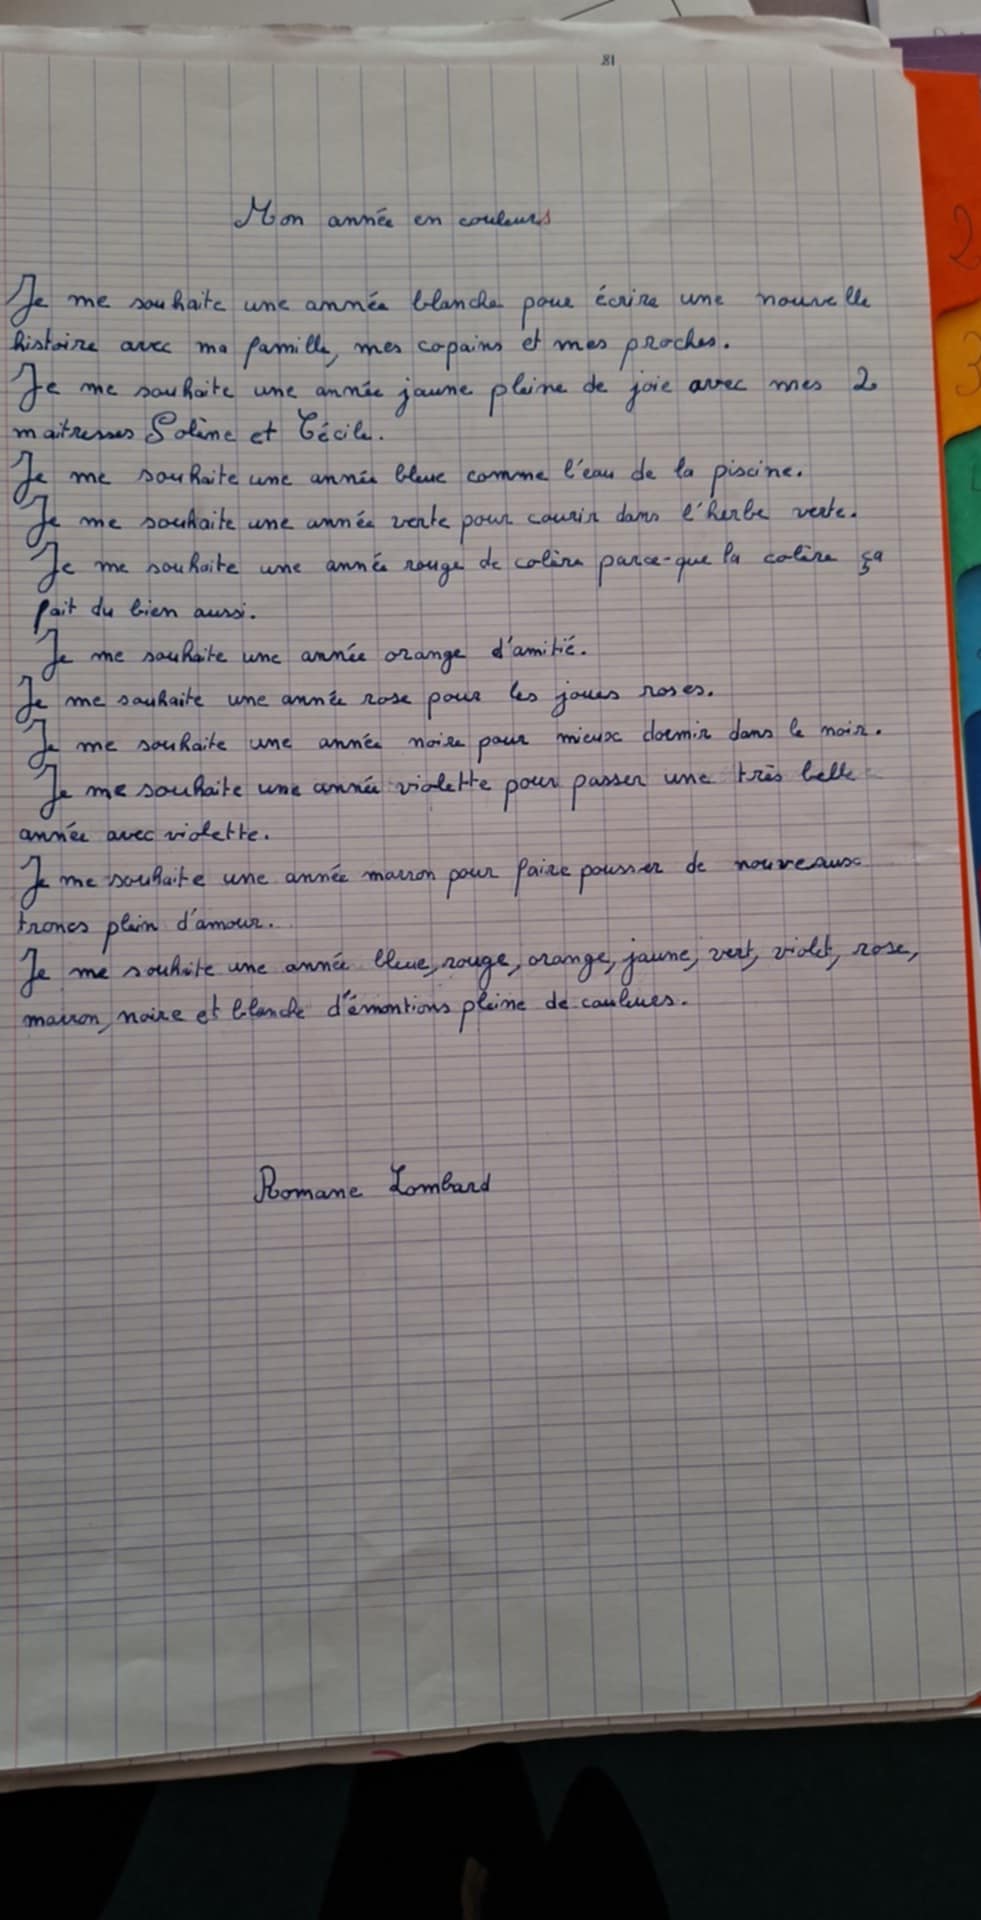 81
Mon année en couleurs
Je me souhaite une année blanche pour écrire une nouvelle
histoire avec ma famille, mes copains et mes proches.
Je me souhaite une année jaune pleine de joie avec mes 2
maitresses Solène et Cécile.
Je me souhaite une année bleue comme l'eau de la piscine.
Je me souhaite une année verte pour courir dans l'herbe verte.
Je me souhaite une année rouge de colère parce-que la colère ça
fait du bien aussi.
Je me souhaite une année orange d'amitié.
Je me souhaite une année rose pour les joues roses.
Je me souhaite une année noire pour mieux dormir dans le noir.
Je me souhaite une année violette pour passer une très belle
année avec violette.
Je me souhaite une année marron pour faire pousser de nouveaux
troncs plein d'amour.
Je me souhaite une année bleue, rouge, orange, jaune, vert, violet, rose,
marron, noire et blanche d'émontions pleine de couleurs.
Romane Lombard
2
3